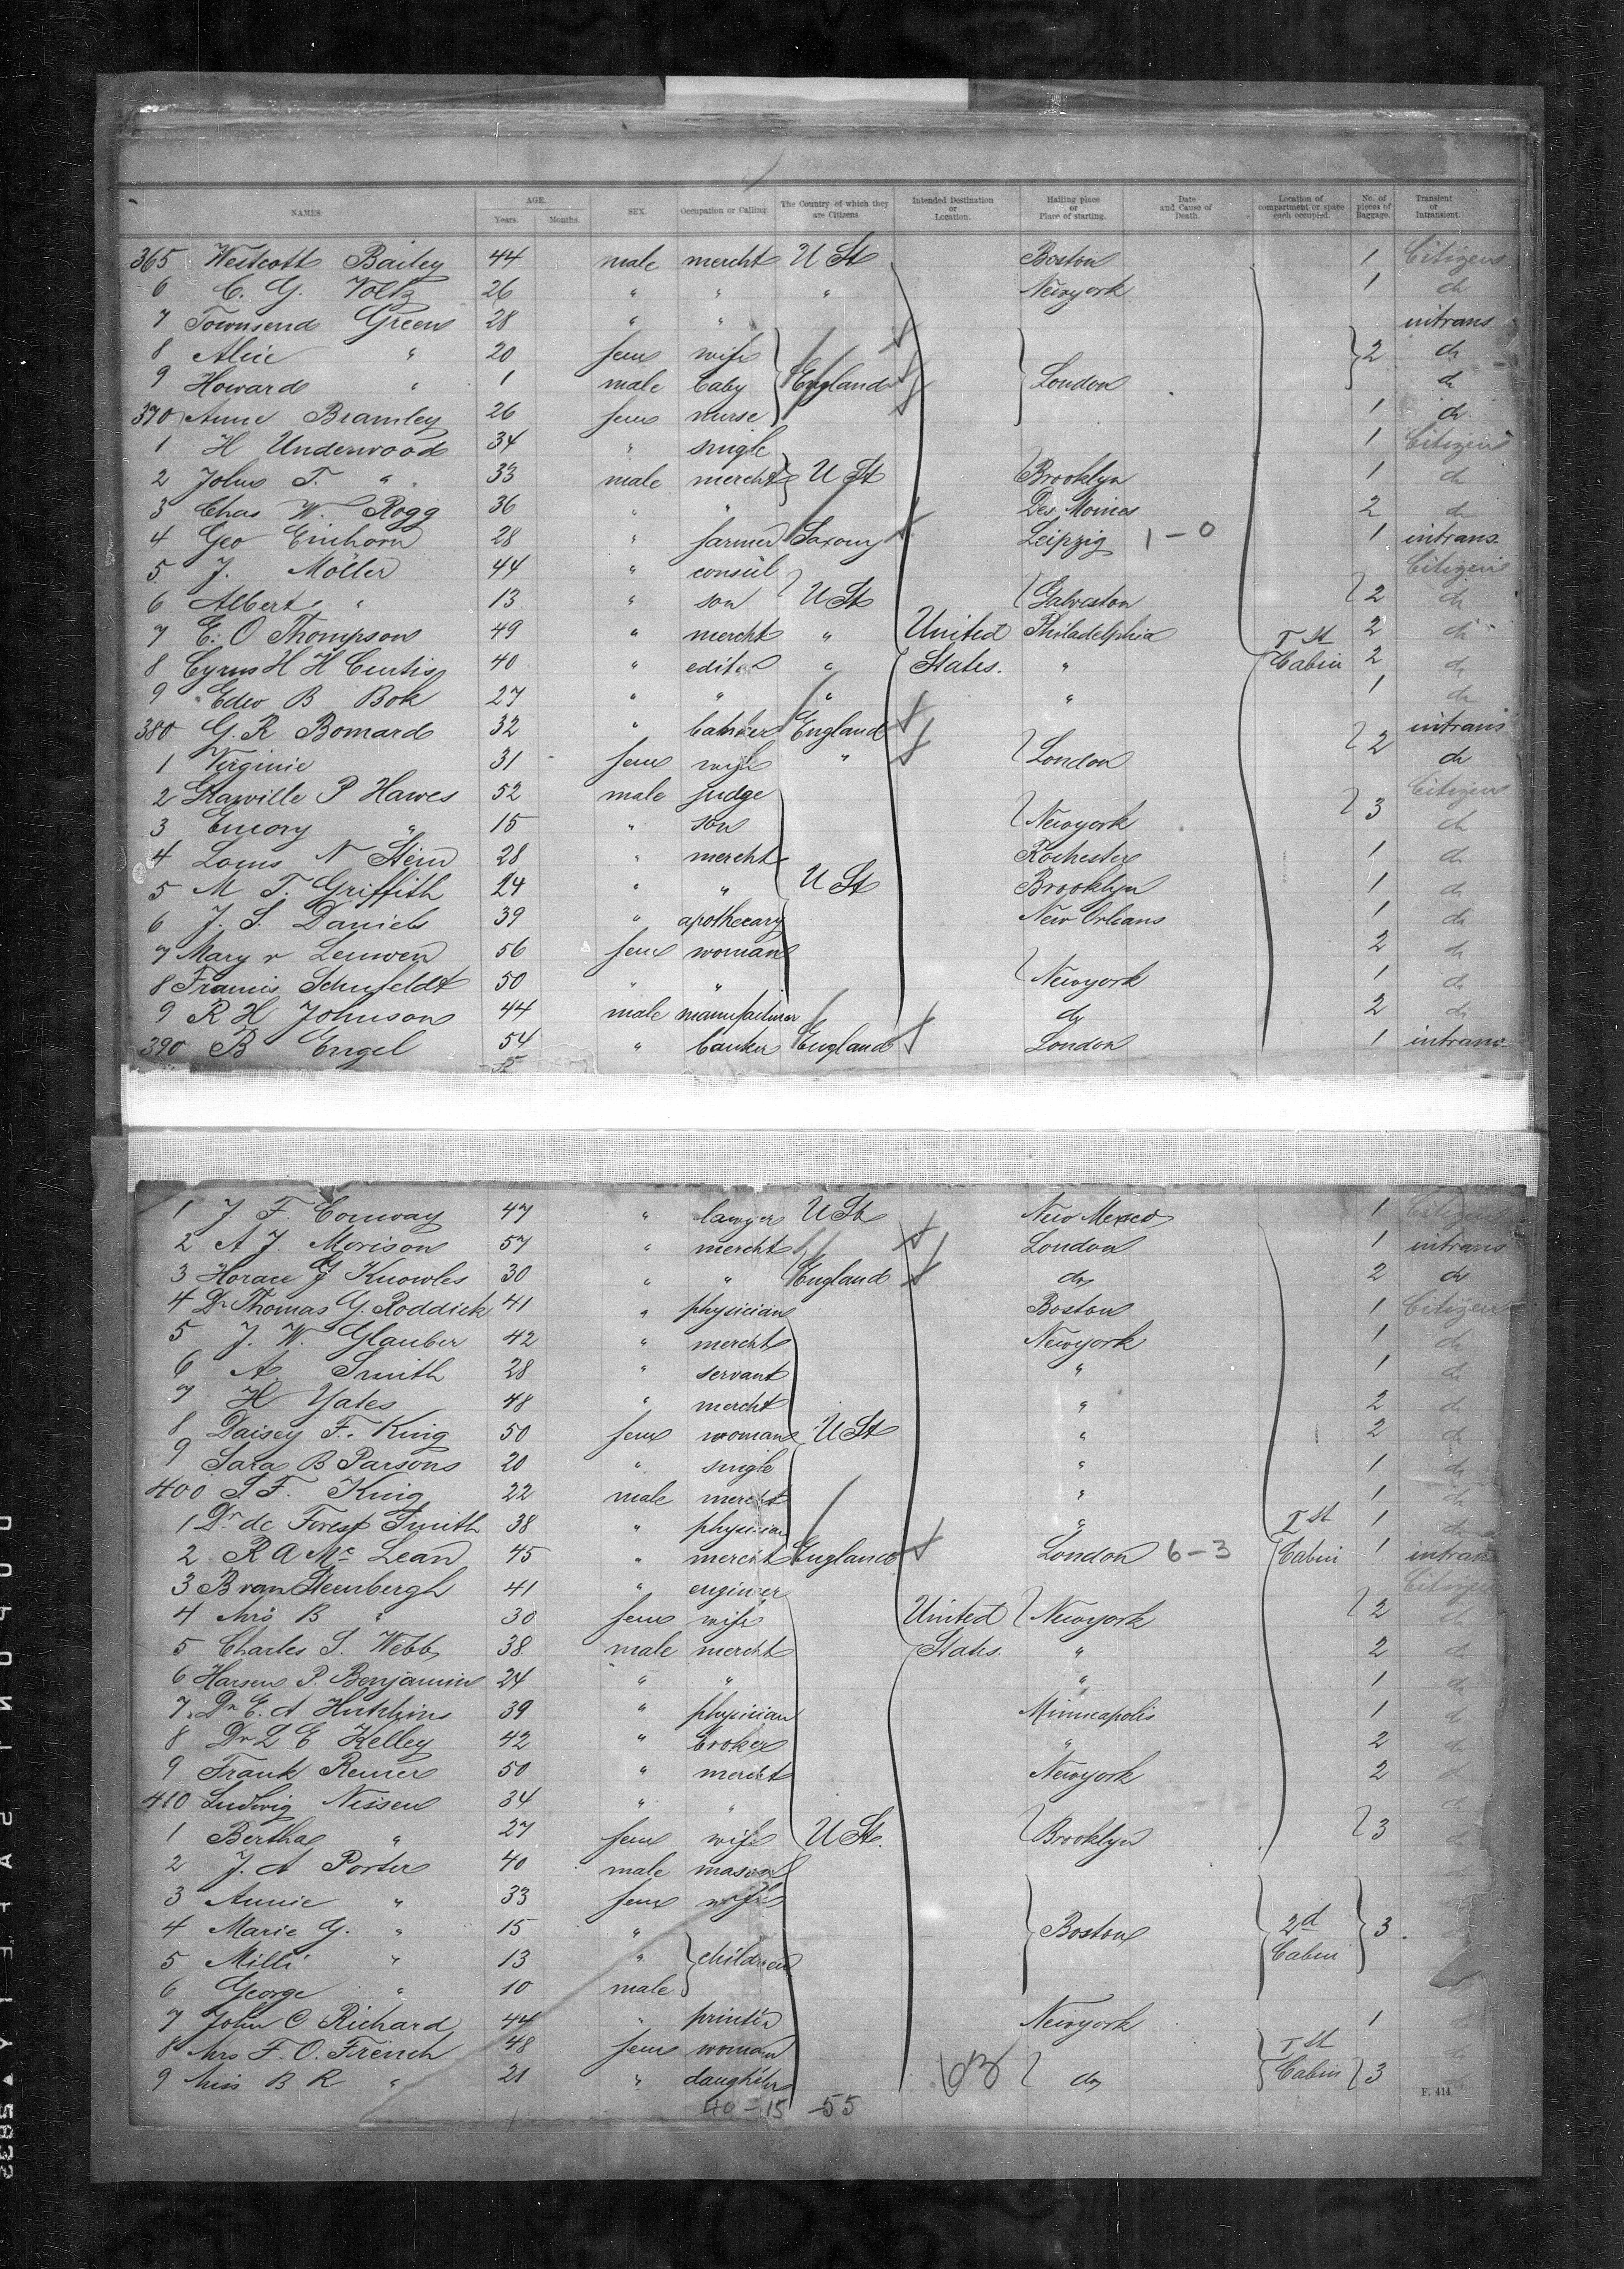 NAMES. AGE. Years. Months. SEX. Occupation or Calling. The Country of which they are Citizens Intended Destination or Location. Hailing place or Place of starting. Date and Cause of Death. Location of compartment or space each occupied. No. of pieces of Baggage. Transient or Intransient.
365 Westcott Bailey 44 male mercht U St Boston 1 Citizen
6 C. G. Voltz 26 " " " Newyork 1 do
7 Townsend Green 28 " " intrans
8 Alice " 20 fem wife 2 do
9 Howard " 1 male baby England London do
370 Anne Bramley 26 fem nurse 1 do
1 H Underwood 34 " single 1 Citizen
2 John T. " 33 male mercht U St Brooklyn 1 do
3 Chas W. Rogg 36 " " Des Moines 2 do
4 Geo Einhorn 28 " farmer Saxony Leipzig 1-0 1 intrans
5 J. Möller 44 " consul Citizen
6 Albert " 13 " son U St Galveston 2 do
7 E. O Thompson 49 " mercht " United Philadelphia 1 St 2 do
8 Cyrus H H Curtis 40 " editor " States. " Cabin 2 do
9 Edw B Bok 27 " " " " 1 do
380 G. R Bomard 32 " banker England intrans
1 Virginie 31 fem wife " London 2 do
2 Granville P Hawes 52 male judge Citizen
3 Emory " 15 " son Newyork 3 do
4 Louis N Stein 28 " mercht Rochester 1 do
5 M T. Griffith 24 " " U St Brooklyn 1 do
6 J. S. Daniels 39 " apothecary New Orleans 1 do
7 Mary v Leuwen 56 fem woman 2 do
8 Francis Schufeldt 50 " " Newyork 1 do
9 R H Johnson 44 male manufacturer do 2 do
390 B Engel 54 " banker England London 1 intrans
1 J. F. Conway 47 " lawyer U St New Mexico 1 Citizen
2 A J. Morison 57 " mercht London 1 intrans
3 Horace G Knowles 30 " " England do 2 do
4 Dr Thomas G. Roddick 41 " physician Boston 1 Citizen
5 J. W. Glauber 42 " mercht Newyork 1 do
6 A. Smith 28 " servant " 1 do
7 H Yates 48 " mercht " 2 do
8 Daisey F. King 50 fem woman U St " 2 do
9 Sara B Parsons 20 " single " 1 do
400 S F. King 22 male mercht " 1 do
1 Dr de Forest Smith 38 " physician " 1 St 1 do
2 R A Mc Lean 45 " mercht England London 6-3 Cabin 1 intrans
3 B van Steenbergh 41 " engineer Citizen
4 Mrs B " 30 fem wife United Newyork 2 do
5 Charles S. Webb 38 male mercht States. " 2 do
6 Harsen P. Benjamin 24 " " " 1 do
7 Dr E. A Hutchins 39 " physician Minneapolis 1 do
8 Dr L E Kelley 42 " broker " 2 do
9 Frank Remer 50 " mercht Newyork 2 do
410 Ludwig Nissen 34 " " do
1 Bertha " 27 fem wife U St. Brooklyn 3
2 J. A Porter 40 male mason
3 Annie " 33 fem wife
4 Marie G. " 15 " Boston 2d 3.
5 Milli " 13 " children Cabin
6 George " 10 male
7 John C Richard 44 " printer Newyork 1
8 Mrs F. O. French 48 fem woman 1 St
9 Miss B R " 21 " daughter 63 do Cabin 3
40-15 55
F. 414